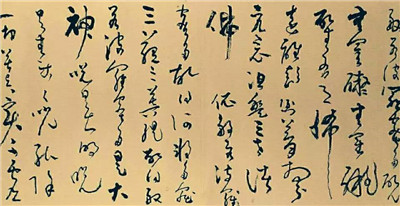 般若波羅蜜多故心
無罣礙無罣礙
故無有恐怖
遠離顛倒夢想究
竟涅槃三世諸
佛依般若波羅
蜜多故得阿耨多羅
三藐三菩提故知般
若波羅蜜多是大
神咒是大明咒
咒能除
一切苦真實不虛